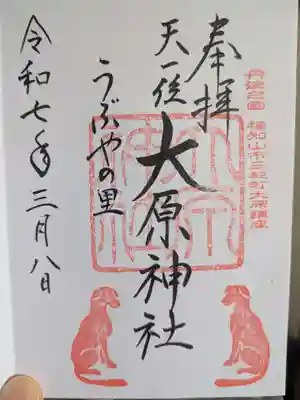 丹波之国 福知山市三和町大原鎮座
奉拝
天一位
大原神社
うぶやの里
令和七年三月八日